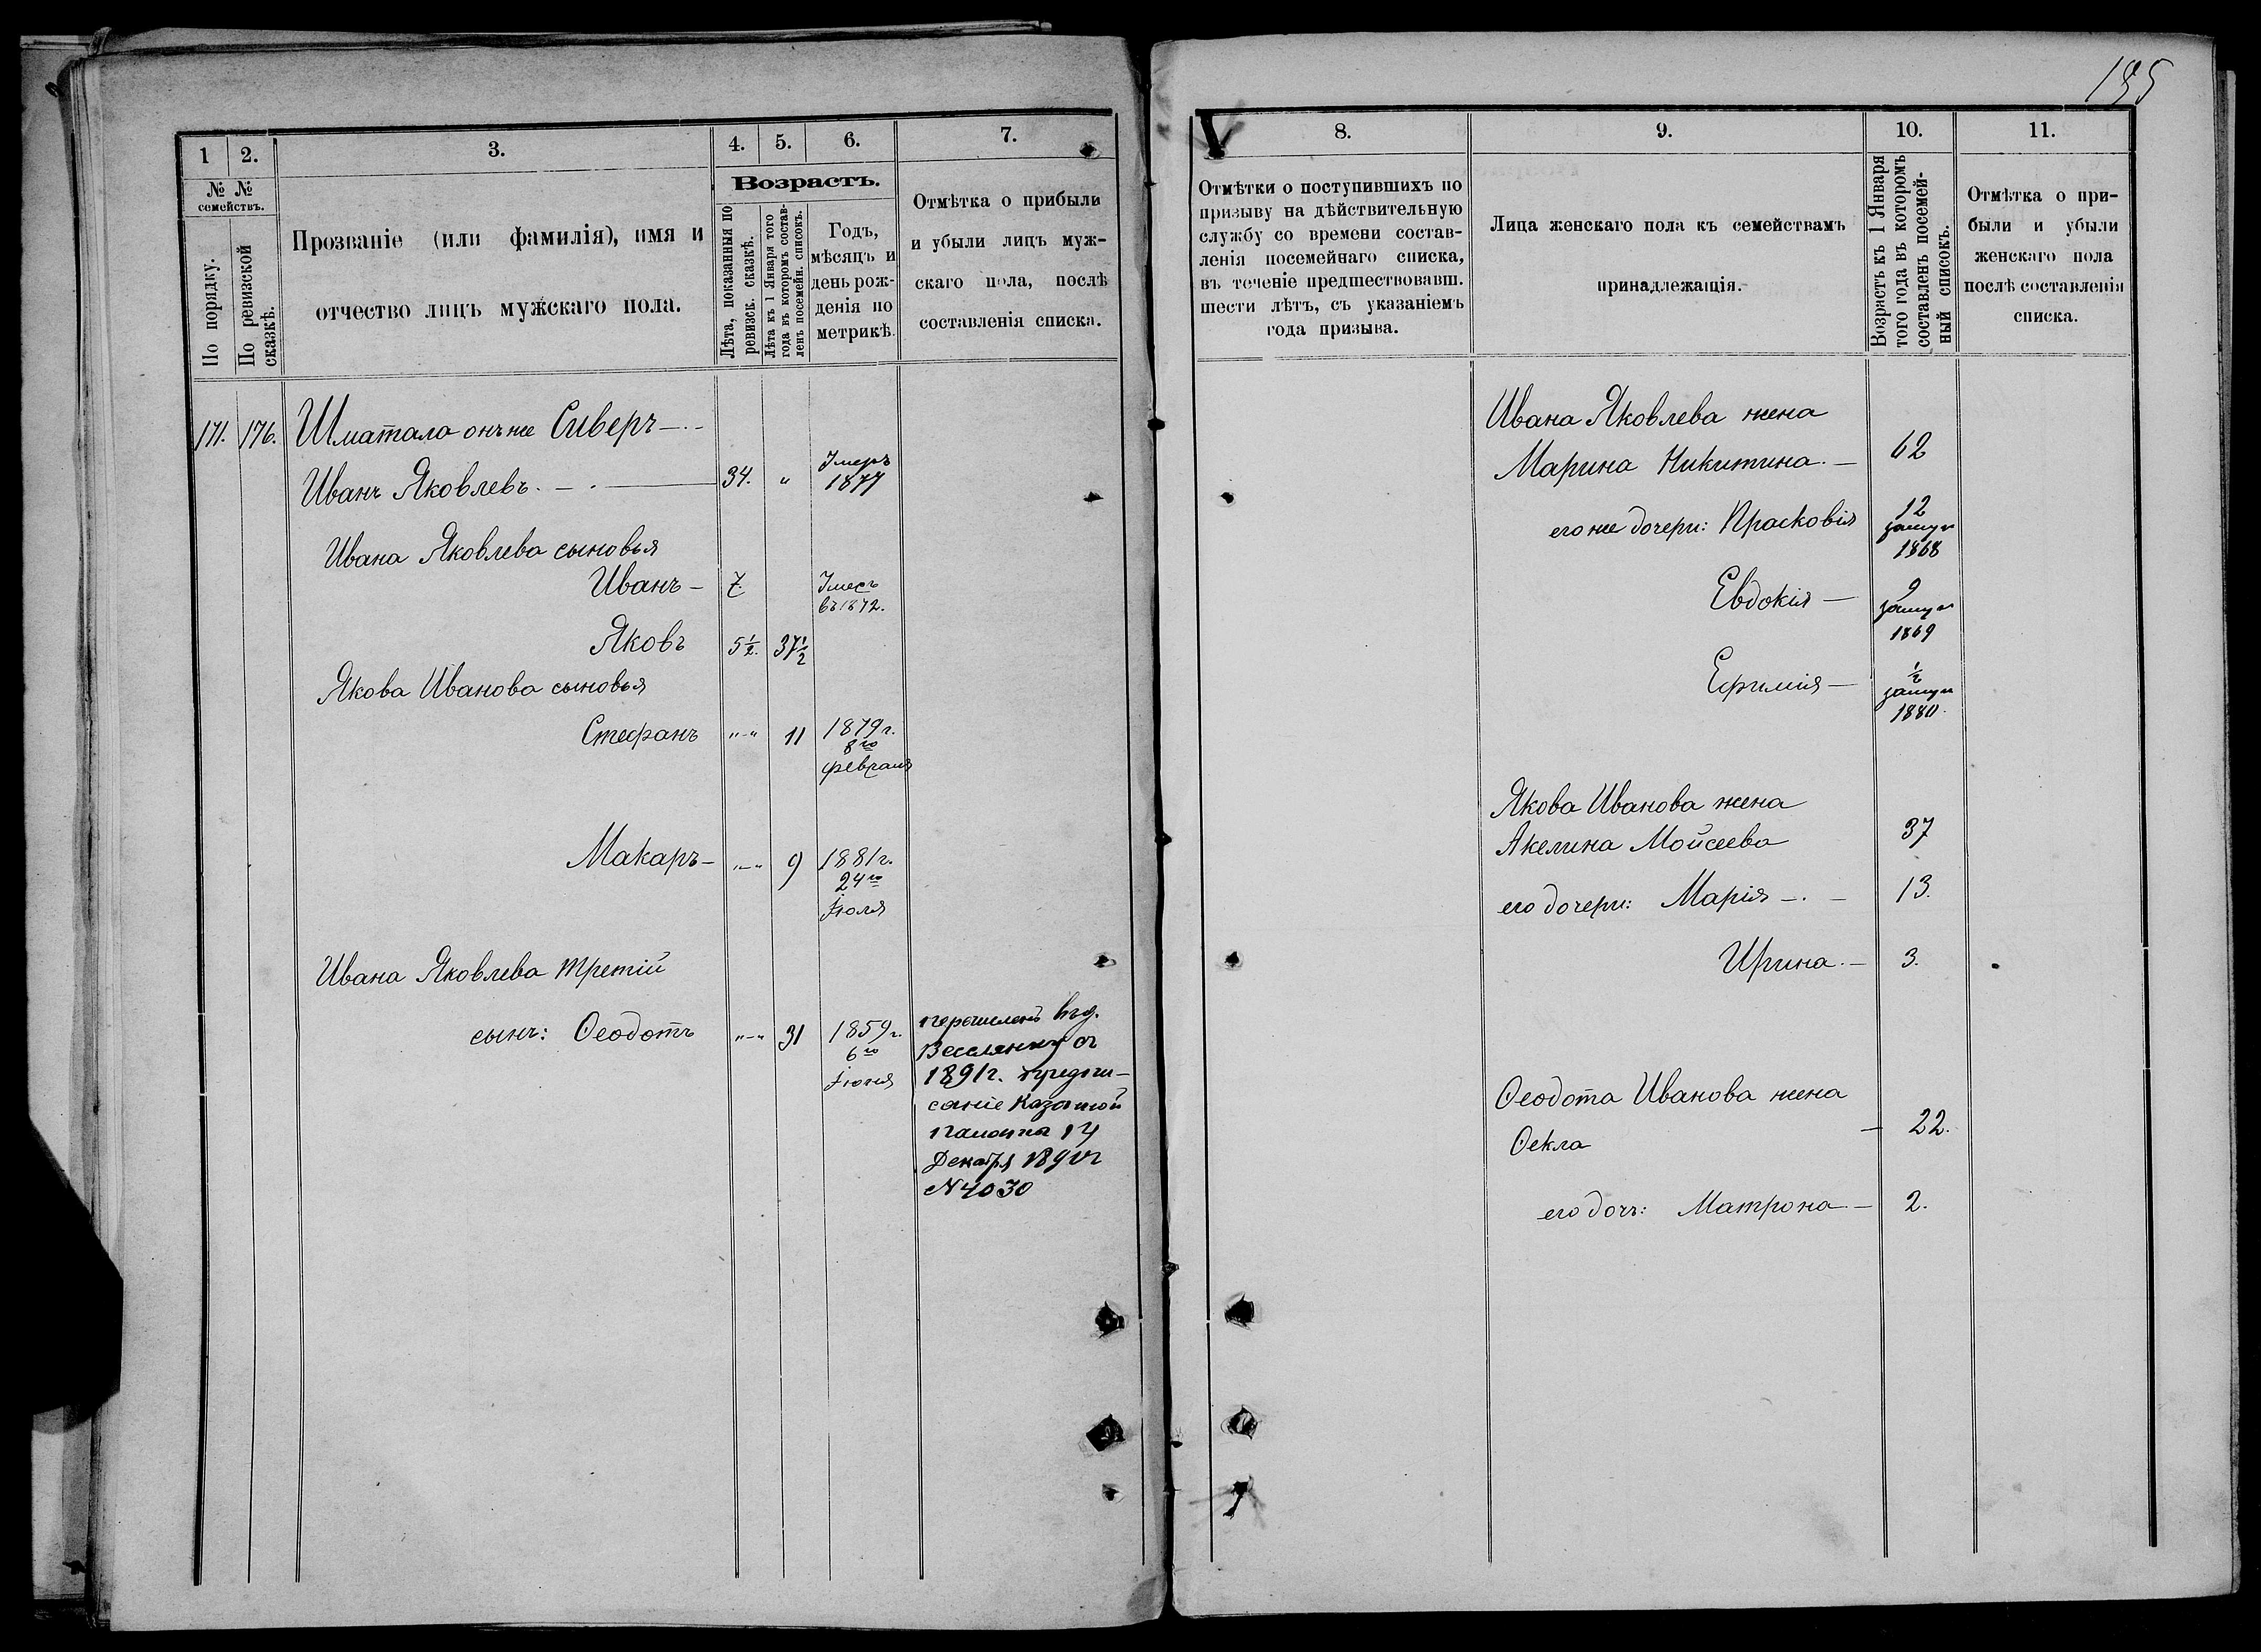 195
1
2.
3.
4.
5.
6.
7.
№ №
семействъ.
По порядку.
По ревизской
сказкѣ.
Прозваніе (или фамилія), имя и
отчество лицъ мужскаго пола.
Возрастъ.
Лѣта, показанныя по
ревизск. сказкѣ.
Лѣта къ 1 Января того
года въ которомъ состав-
ленъ посемейн. списокъ.
Годъ,
мѣсяцъ и
день рож-
денія по
метрикѣ.
Отмѣтка о прибыли
и убыли лицъ муж-
скаго пола, послѣ
составленія списка.
171. 176. Шматало онъ же Сиверъ —
Иванъ Яковлевъ. — 34. „ Умеръ
1877
Ивана Яковлева сыновья
Иванъ — 7 Умеръ
въ 1872.
Яковъ 5½. 37½
Якова Иванова сыновья
Стефанъ „—„ 11 1879 г.
8го
февраля
Макаръ — „—„ 9 1881 г.
24го
Іюля
Ивана Яковлева третій
сынъ: Ѳеодотъ „—„ 31 1859 г.
6го
Іюня
перечисленъ въ д.
Веслянку съ
1891 г. предпи-
саніе Казенной
палаты 14
Декабря
N 4030
8.
9.
10.
11.
Отмѣтки о поступившихъ по
призыву на дѣйствительную
службу со времени состав-
ленія посемейнаго списка,
въ теченіе предшествовавш.
шести лѣтъ, съ указаніемъ
года призыва.
Лица женскаго пола къ семействамъ
принадлежащія.
Возрастъ къ 1 Января
того года въ которомъ
составленъ посемей-
ный списокъ.
Отмѣтка о при-
были и убыли
женскаго пола
послѣ составленія
списка.
Ивана Яковлева жена
Марина Никитина. — 62
его же дочери: Прасковія 12
замуж
1868
Евдокія — 9
замуж
1869
Ефимія — ½
замуж
1880.
Якова Иванова жена
Акелина Мойсеева 37
его дочери: Марія — 13.
Ирина. — 3.
Ѳеодота Иванова жена
Ѳекла — 22.
его дочь: Матрона — 2.